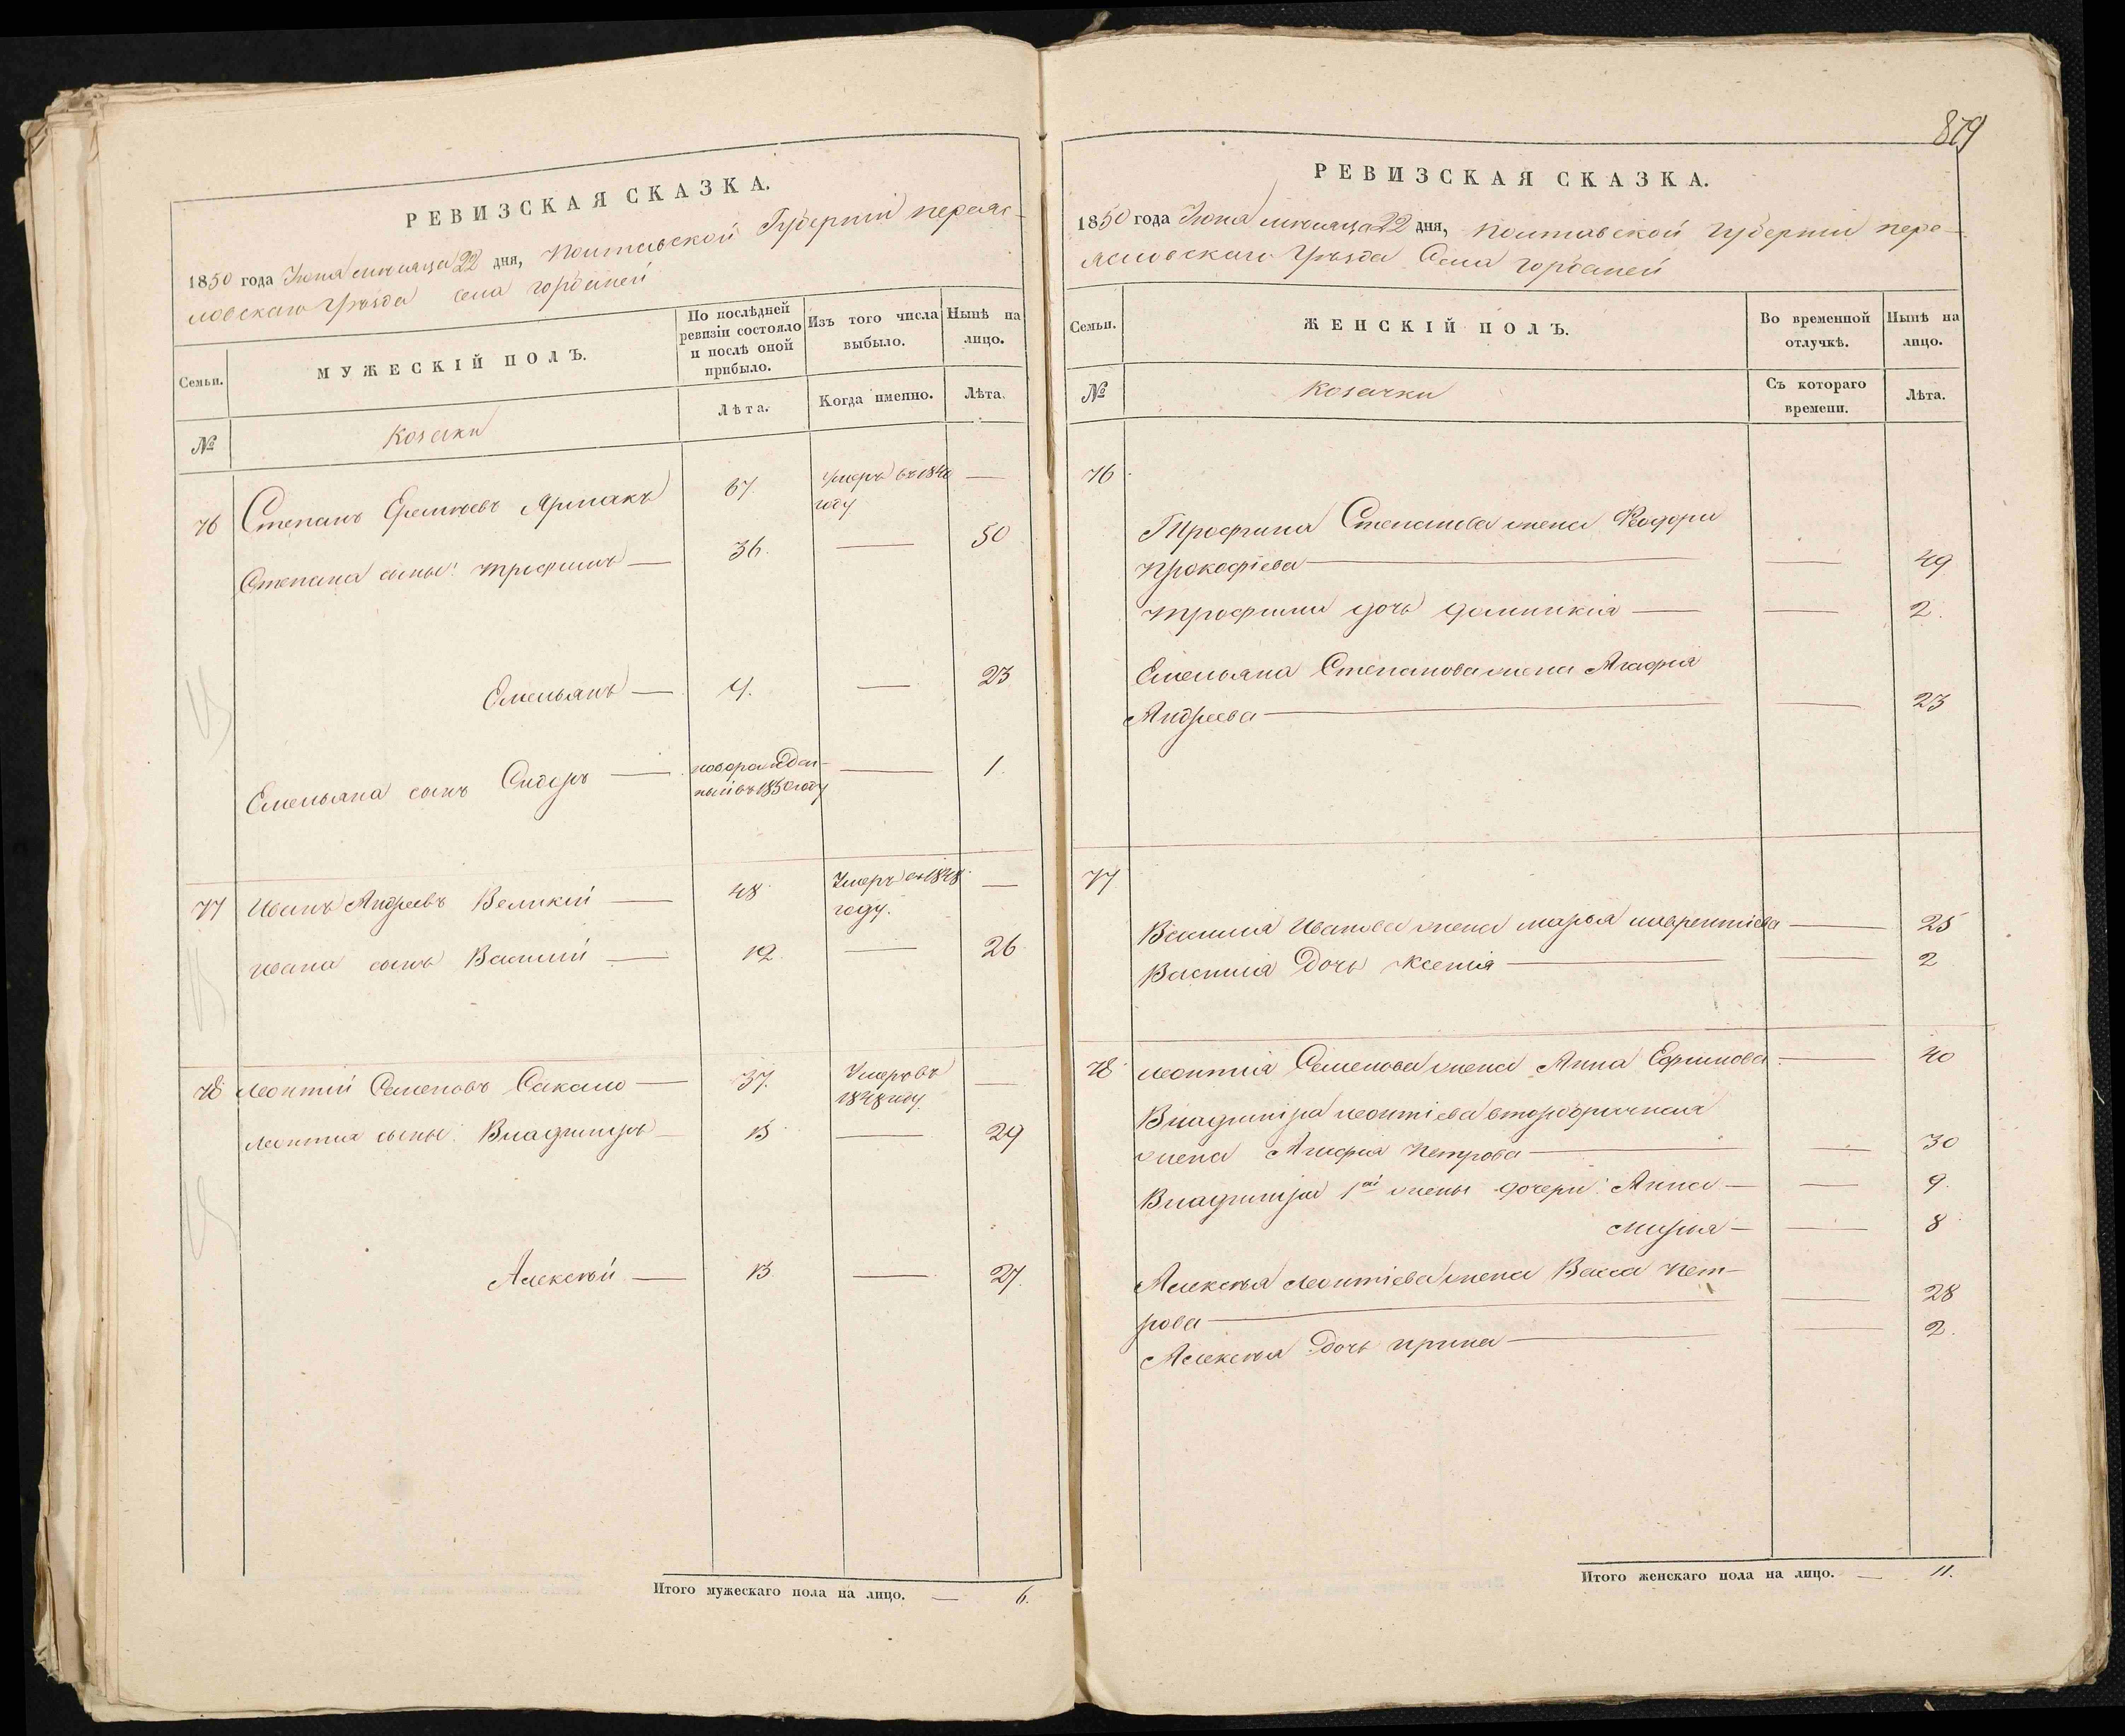 РЕВИЗСКАЯ СКАЗКА.
1850 года Июня месяца 22 дня, Полтавской Губерніи переяс-
ловскаго Уѣзда села Горбаней
Семьи.
МУЖЕСКІЙ ПОЛЪ.
По послѣдней ревизіи состояло и послѣ оной прибыло.
Изъ того числа выбыло.
Нынѣ на лицо.
№
Козаки
Лѣта.
Когда именно.
Лѣта.
76 Степанъ Еремѣевъ Ярмакъ 67. умеръ въ 1846 году —
Степана сыны: трофимъ — 36. — 50
Емельянъ — 9. — 23
Емельяна сынъ Сидоръ — новорожден-
ный въ 1850 году — 1.
77 Иванъ Андреевъ Великій — 48 Умеръ въ 1848 году. —
Ивана сынъ Василій — 12. — 26
78 Леонтій Семеновъ Сакало — 37. Умеръ въ 1848 году. —
Леонтія сыны: Владиміръ — 15 — 29
Алексѣй — 13 — 27.
Итого мужескаго пола на лицо. — 6.
879
РЕВИЗСКАЯ СКАЗКА.
1850 года Июня месяца 22 дня, Полтавской Губерніи пере-
ясловскаго Уѣзда Села Горбаней
Семьи.
ЖЕНСКІЙ ПОЛЪ.
Во временной отлучкѣ.
Нынѣ на лицо.
№
Козачки
Съ котораго времени.
Лѣта.
76
Трофима Степанова жена Феодора
Прокофіева — — 49
трофима дочь Домникія — — 2.
Емельяна Степанова жена Агафія
Андреева — — 23
77
Василія Иванова жена марья лаврентіева — 25
Василія Дочь Ксенія — — 2
78 Леонтія Семенова жена Анна Ефимова — 40
Владиміра леонтіева второбрачная
жена Агафія Петрова — — 30
Владиміра 1ой жены дочери: Анна — — 9.
Марья — — 8
Алексѣя Леонтіева жена Васса Пет-
рова — — 28
Алексѣя Дочь ирина — — 2.
Итого женскаго пола на лицо. — 11.